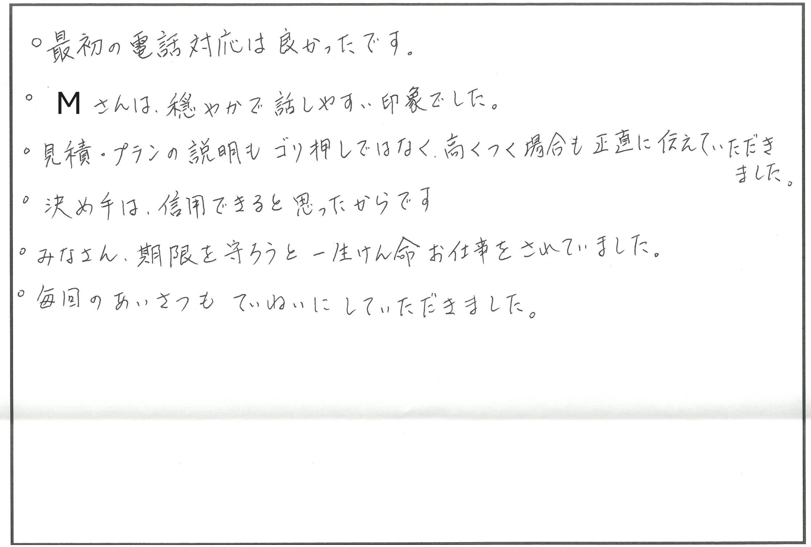 ○最初の電話対応は良かったです。
○Mさんは、穏やかで話しやすい印象でした。
○見積・プランの説明もゴリ押しではなく、高くつく場合も正直に伝えていただき
ました。
○決め手は、信用できると思ったからです
○みなさん、期限を守ろうと一生けん命お仕事をされていました。
○毎回のあいさつもていねいにしていただきました。